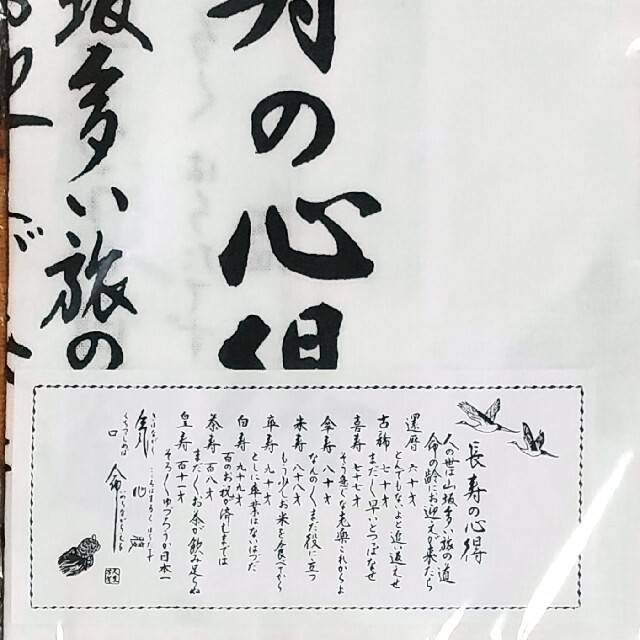 寿の心得
坂多い旅の
長寿の心得
人の世は山坂多い旅の道
命の齢にお迎えが来たら
還暦 六十才
とんでもないよと追返えせ
古稀 七十才
まだまだ早いとつっぱなせ
喜寿 七十七才
そう急ぐな老楽これからよ
傘寿 八十才
なんのまだまだ役に立つ
米寿 八十八才
もう少しお米を食べてから
卒寿 九十才
年に卒業はないはずだ
白寿 九十九才
百のお祝が済むまでは
茶寿 百八才
まだまだお茶が飲み足らぬ
皇寿 百十一才
そろそろゆづろうか日本一
気 心 腹 口 命